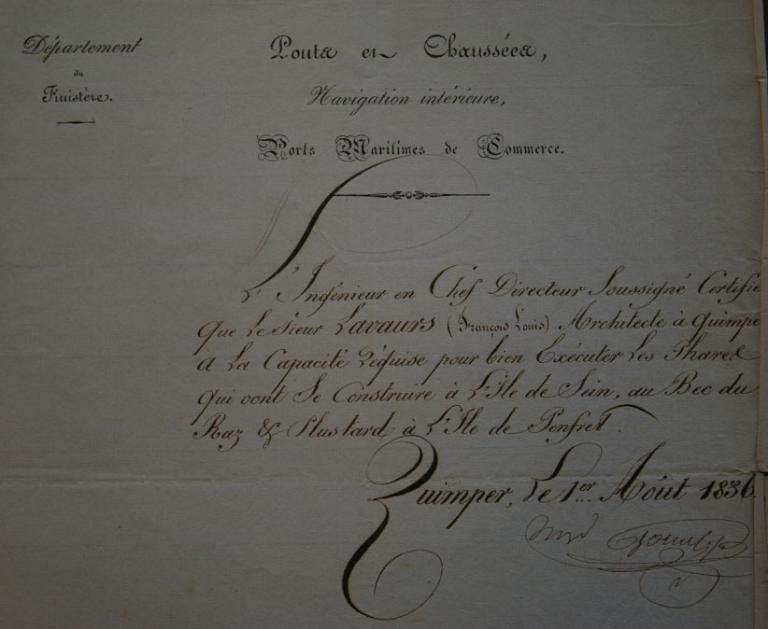 Département
du
Finistère.
Ponts et Chaussées,
Navigation intérieure,
Ports Maritimes de Commerce.
L'Ingénieur en Chef Directeur Soussigné Certifie
Que Le Sieur Lavaurs (François Louis) Architecte à Quimpe
A La Capacité Requise pour bien Exécuter Les Phares
Qui vont Se Construire à L'Ile de Sein, au Bec du
Raz & Plus tard à L'Ile de Penfret.
Quimper, Le 1er Août 1836.